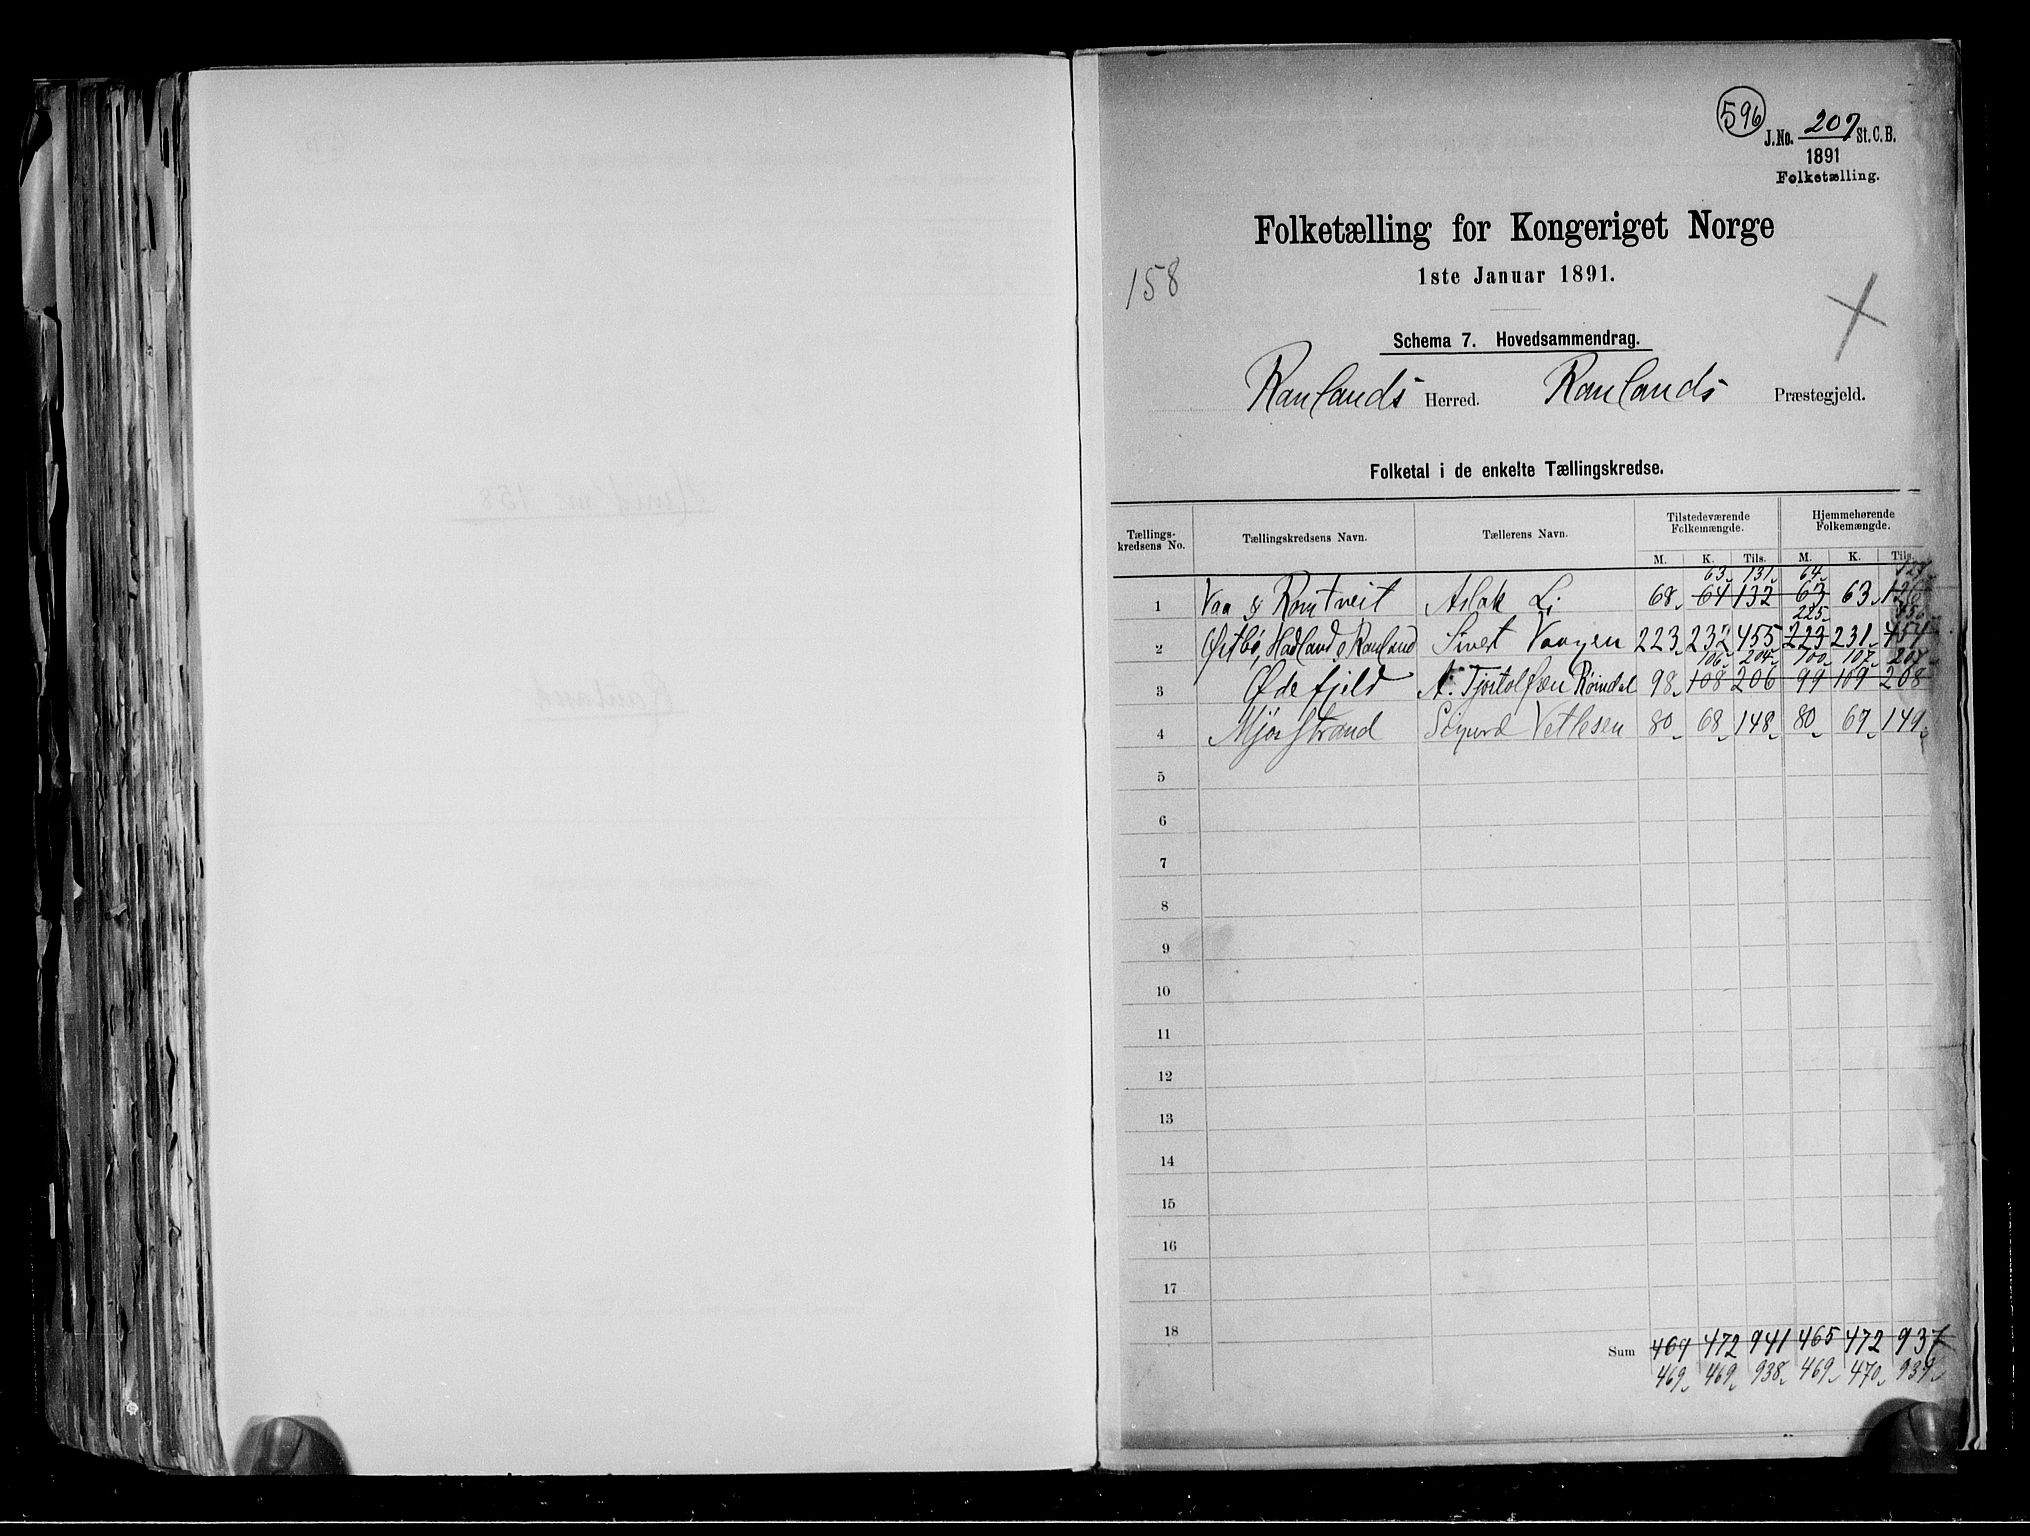 596
J.No. 207 St. C. B.
1891
Folketælling.
Folketælling for Kongeriget Norge
1ste Januar 1891.
158
Schema 7. Hovedsammendrag.
Raulands Herred. Raulands Præstegjeld.
Folketal i de enkelte Tællingskredse.
Tællings-kredsens No. Tællingskredsens Navn. Tællerens Navn. Tilstedeværende Folkemængde. Hjemmehørende Folkemængde.
M. K. Tils. M. K. Tils.
63 131 64 127
1 Vaa & Romtveit Aslak Li 68 64 132 63 63 126
225 456
2 Østbø, Hadland & Rauland Sivert Vaagen 223 232 455 223 231 454
106 204 100 107 207
3 Ødefjeld A. Tjostolfsen Røindal 98 108 206 99 109 208
4 Mjøsstrand Sigurd Vetlesen 80 68 148 80 69 149
5
6
7
8
9
10
11
12
13
14
15
16
17
18
Sum 469 472 941 465 472 937
469 469 938 469 470 939